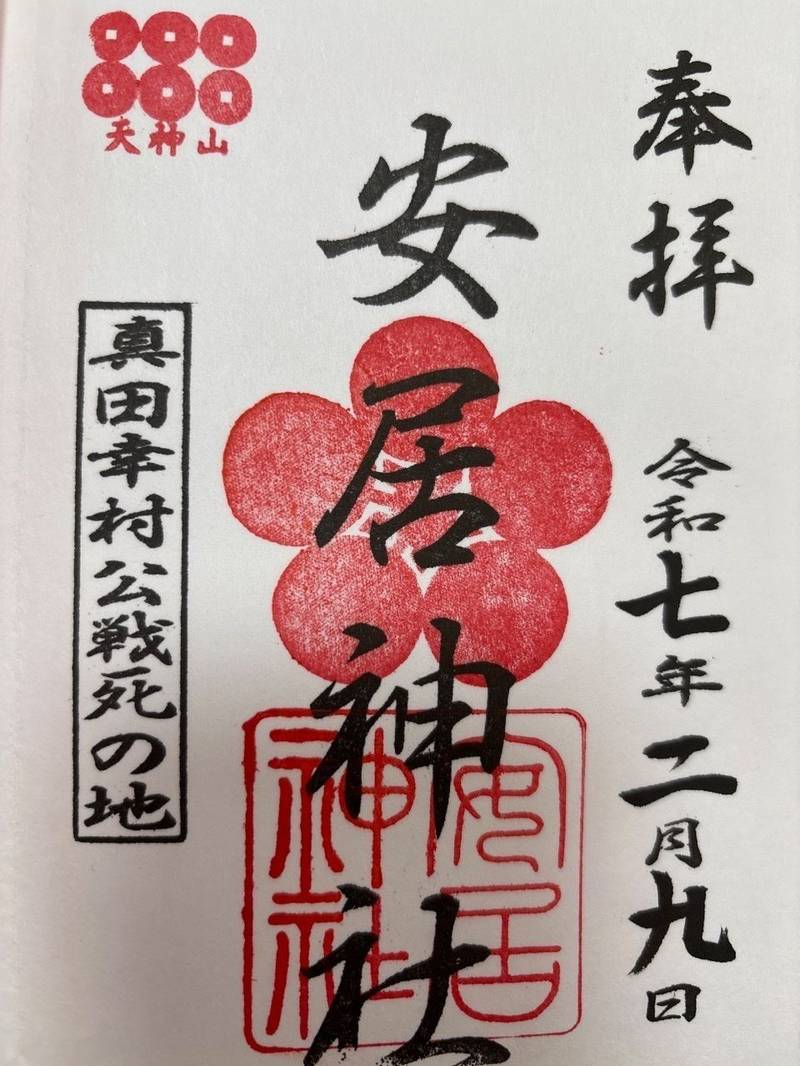 奉拝
令和七年二月九日
安居神社
安居
神社
天神山
真田幸村公戦死の地